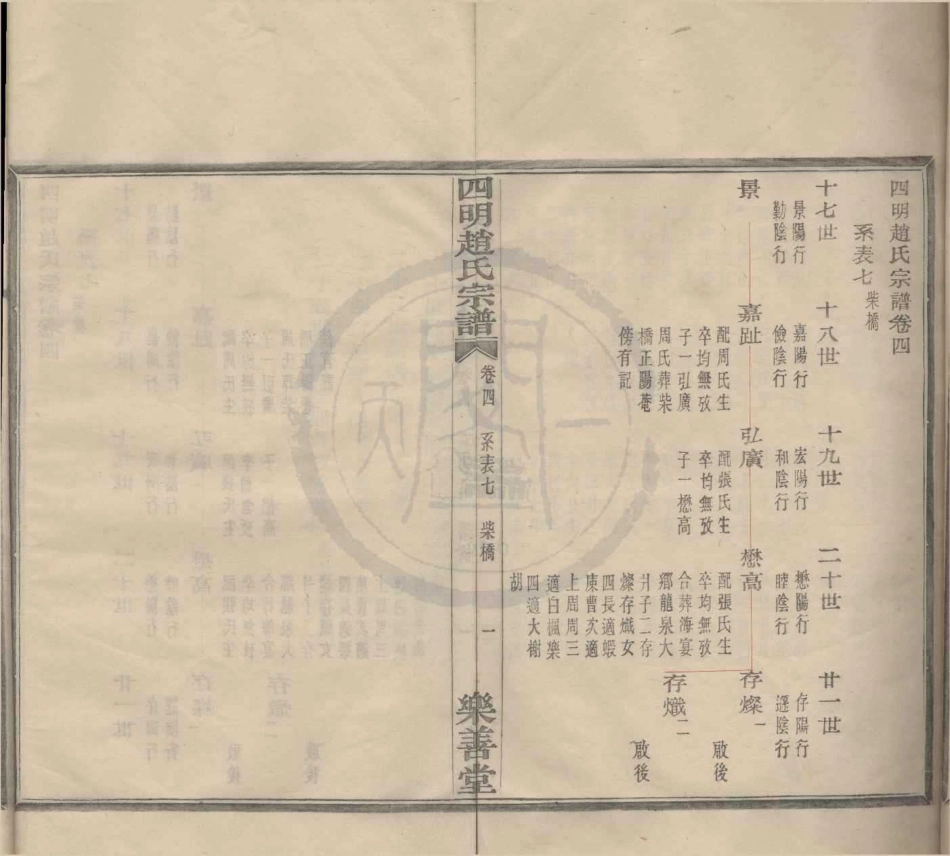 四明趙氏宗譜卷四
系表七 柴橋
十七世
景陽行
勤陰行
十八世
嘉陽行
儉陰行
十九世
宏陽行
和陰行
二十世
懋陽行
睦陰行
廿一世
存陽行
遜陰行
景
嘉趾
配周氏生
卒均無攷
子一弘廣
周氏葬柴
橋正陽菴
傍有記
弘廣
配張氏生
卒均無攷
子一懋高
懋高
配張氏生
卒均無攷
合葬海宴
鄉龍泉大
廾子二存
燦存熾女
四長適蝦
康曹次適
上周周三
適白楓樂
四適大榭
胡
存燦一
啟後
存熾二
啟後
四明趙氏宗譜
卷四
系表七
柴橋
一
樂善堂